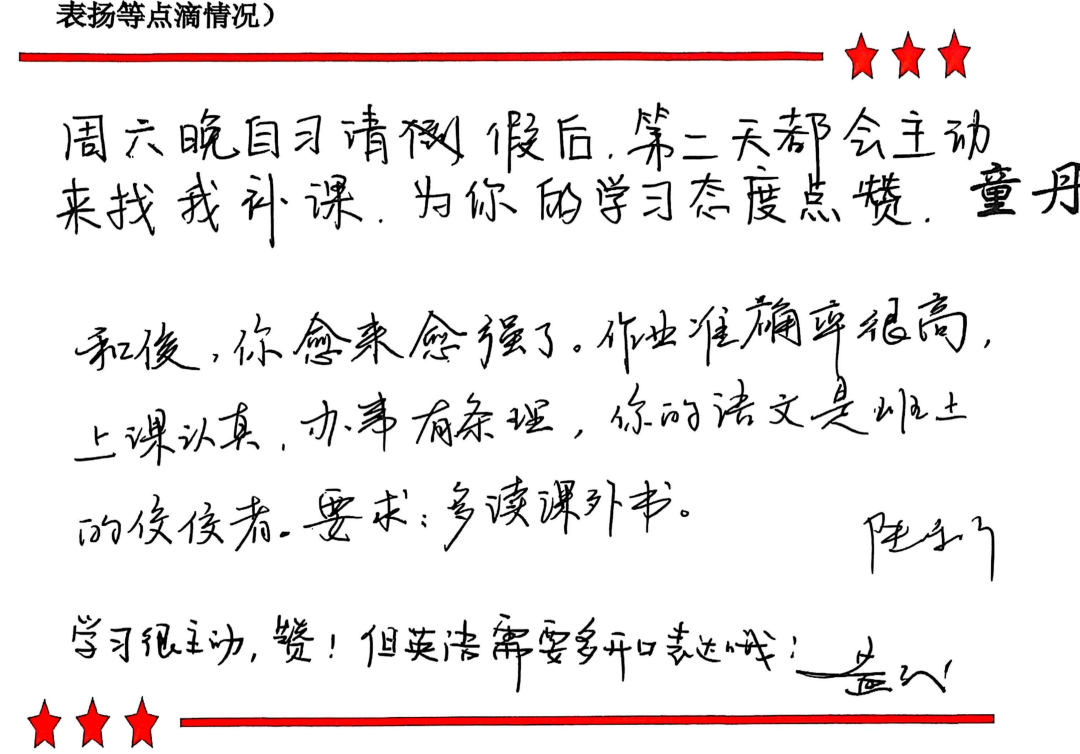 表扬等点滴情况）
周六晚自习请假后，第二天都会主动
来找我补课，为你的学习态度点赞。童丹
和俊，你愈来愈强了。作业准确率很高，
上课认真，办事有条理，你的语文是班上
的佼佼者。要求：多读课外书。
学习很主动，赞！但英语需要多开口表达哦！